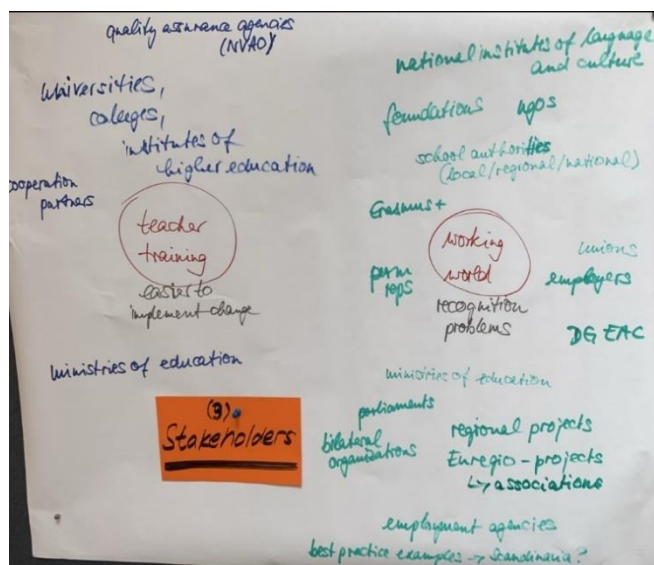 quality assurance agencies
(NVAO)
universities,
colleges,
institutes of
higher education
cooperation
partners
teacher
training
easier to
implement change
ministries of education
(3)
Stakeholders
national institutes of language
and culture
foundations ngos
school authorities
(local/regional/national)
Erasmus+
working
world
perm
reps
recognition
problems
unions
employers
DG EAC
ministries of education
parliaments
bilateral
organizations
regional projects
Euregio-projects
↳ associations
employment agencies
best practice examples → Scandinavia?